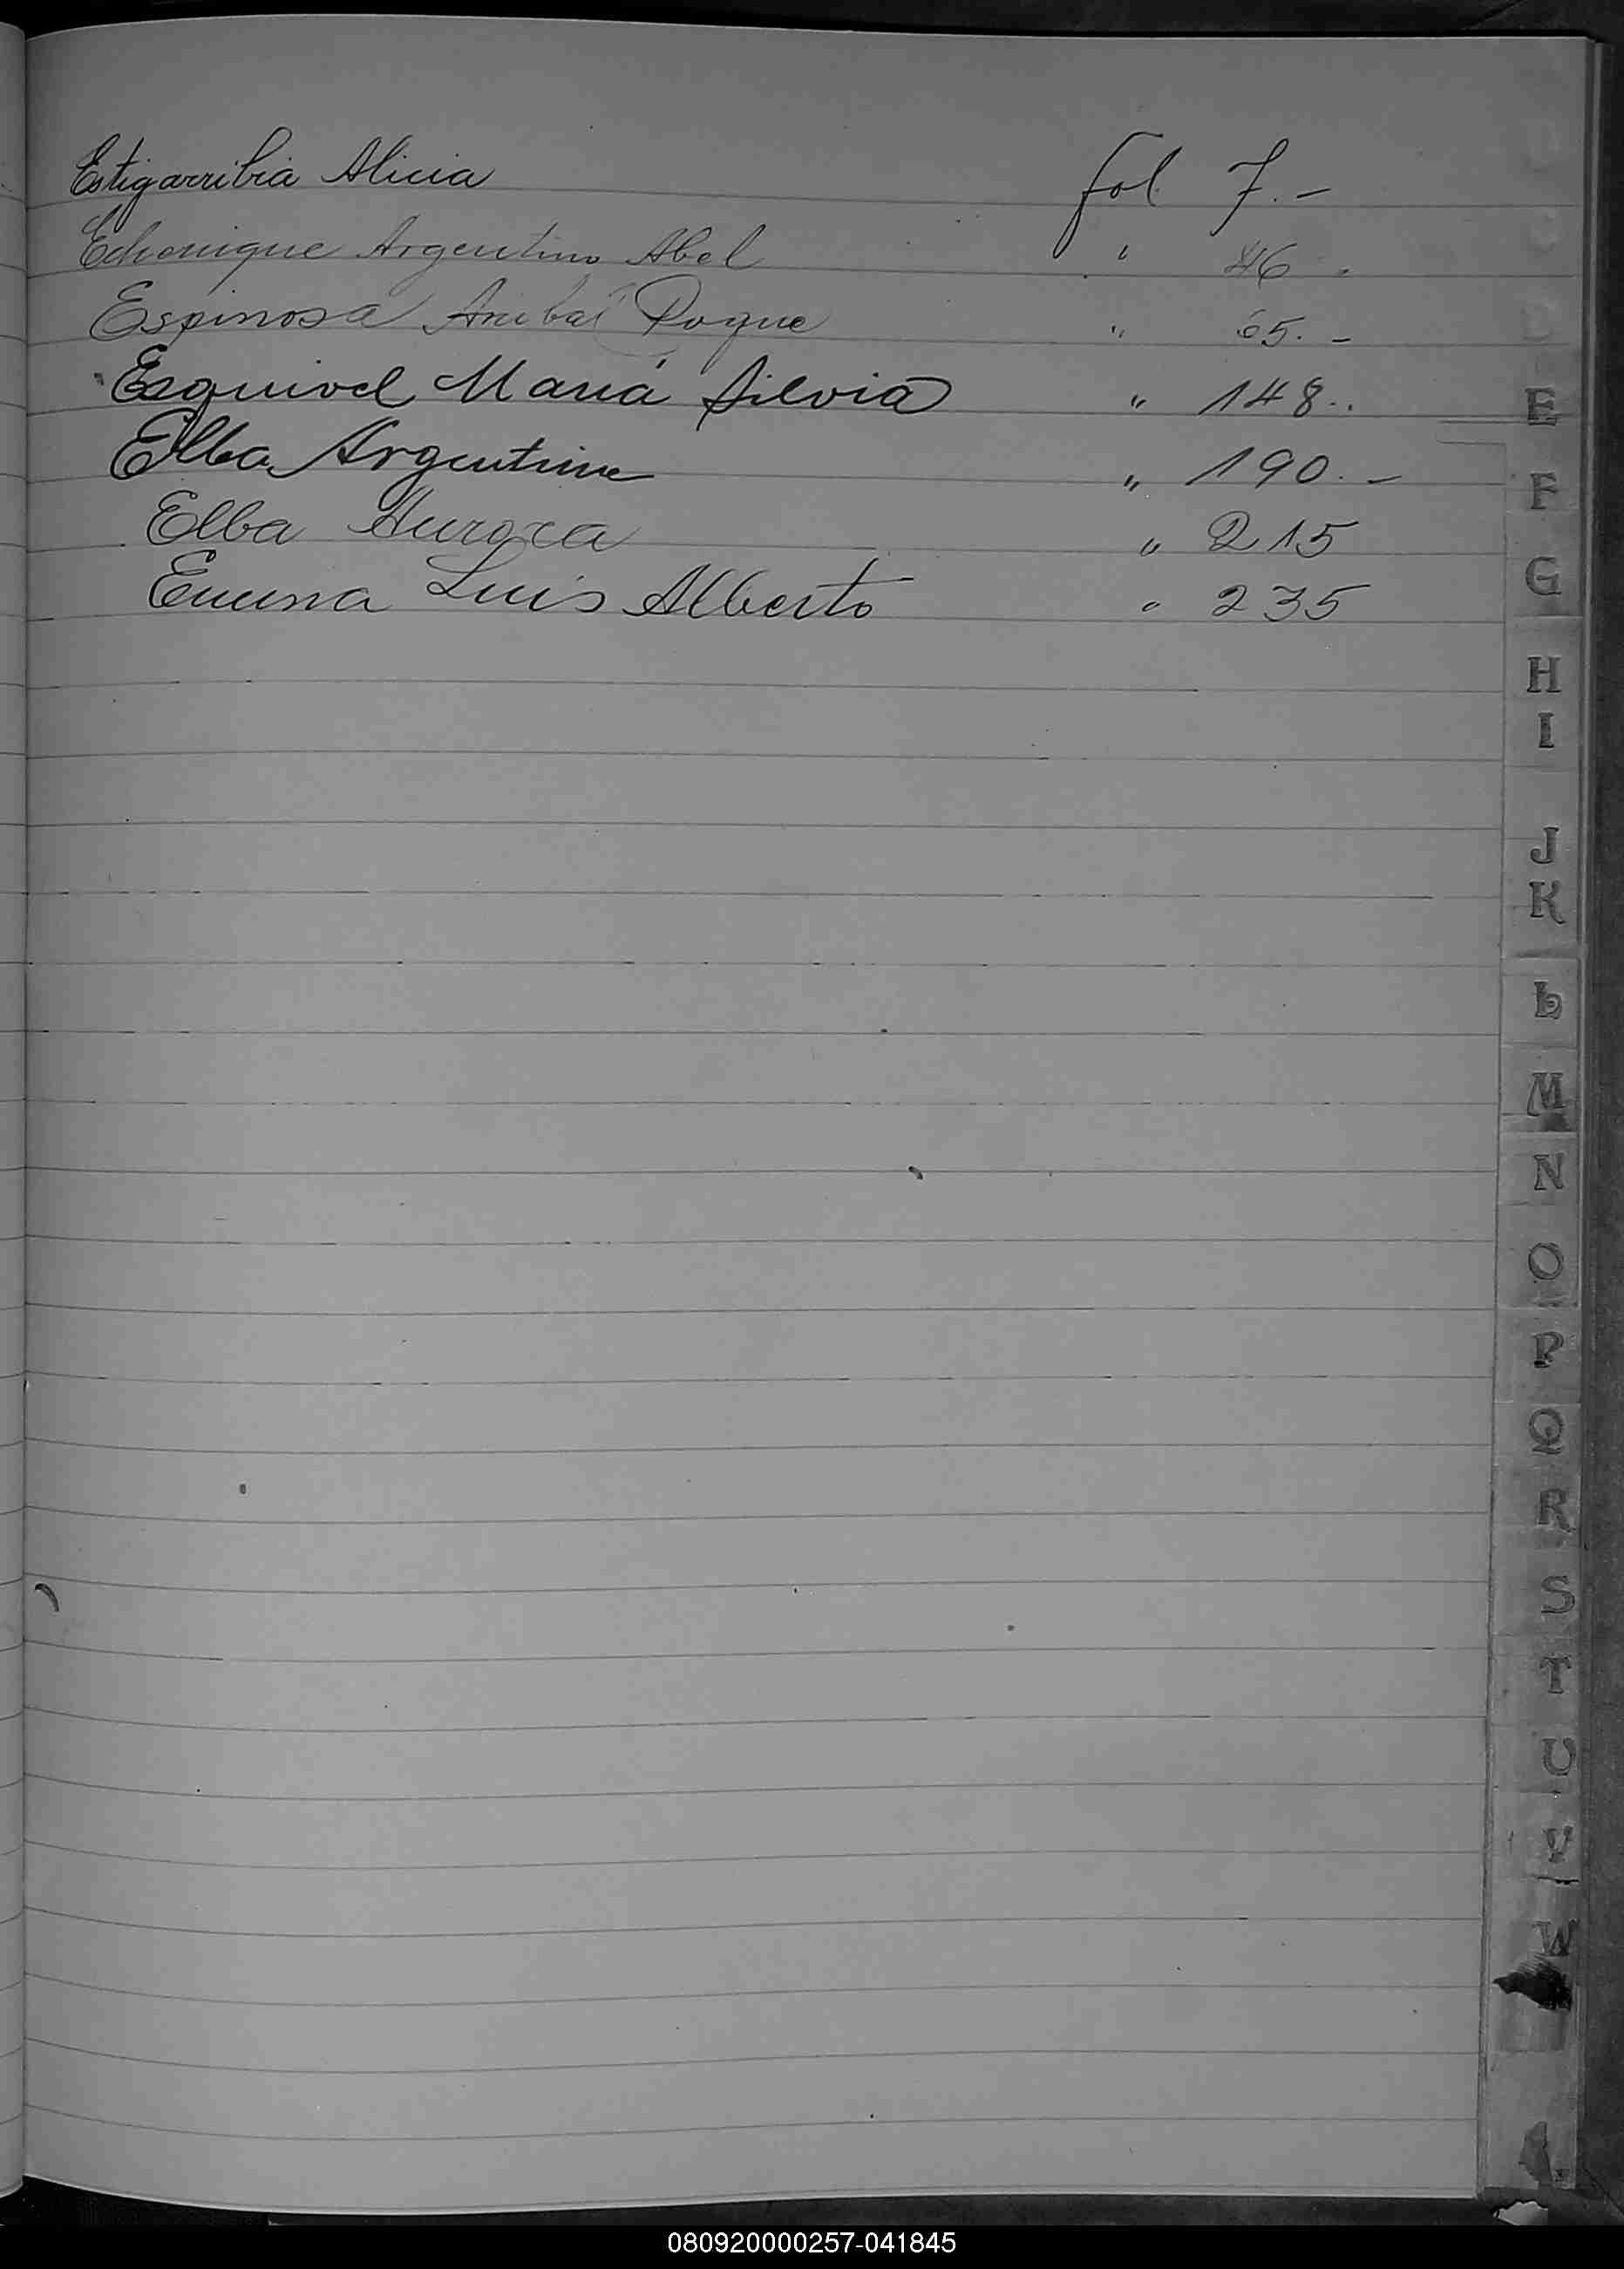 Estigarribia Alicia fol 7.-
Echenique Argentino Abel " 46 -
Espinosa Anibal Roque " 65.-
Esquivel María Silvia " 148..
Elba Argentina " 190.-
Elba Aurora " 215
Luis Alberto " 235
E
F
G
H
I
J
K
L
M
N
O
P
Q
R
S
T
U
V
W
080920000257-041845